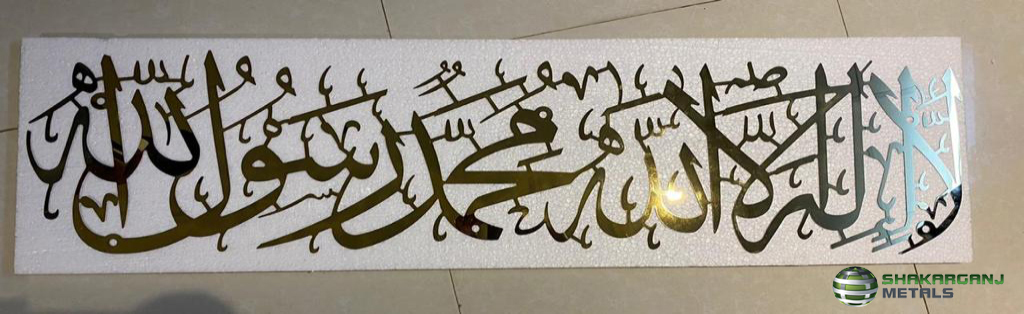 لا إله إلا الله محمد رسول الله
SHAKARGANJ
METALS